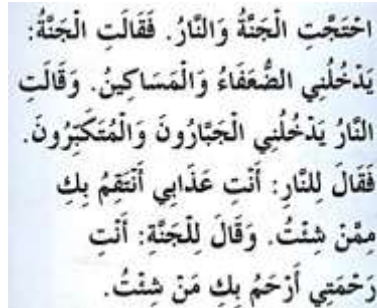 احْتَجَّتِ الْجَنَّةُ وَالنَّارُ. فَقَالَتِ الْجَنَّةُ:
يَدْخُلُنِي الضُّعَفَاءُ وَالْمَسَاكِينُ. وَقَالَتِ
النَّارُ يَدْخُلُنِي الْجَبَّارُونَ وَالْمُتَكَبِّرُونَ.
فَقَالَ لِلنَّارِ: أَنْتِ عَذَابِي أَنْتَقِمُ بِكِ
مِمَّنْ شِئْتُ. وَقَالَ لِلْجَنَّةِ: أَنْتِ
رَحْمَتِي أَرْحَمُ بِكِ مَنْ شِئْتُ.